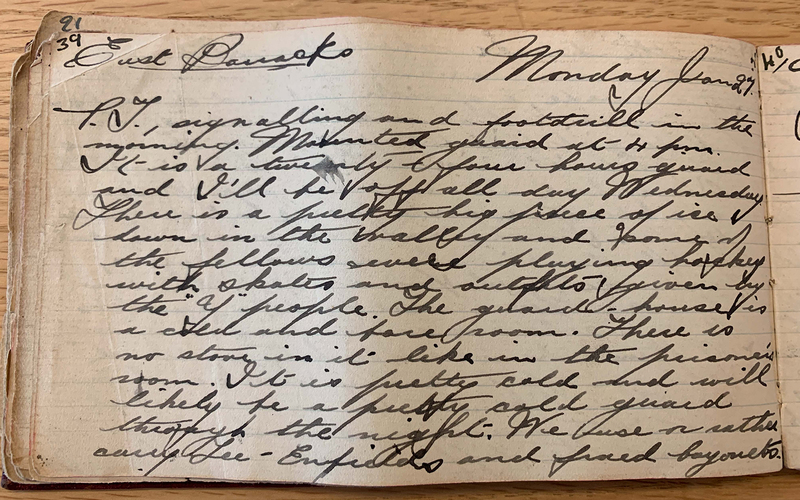 21
39
East Barracks Monday Jan 27.
P.T., signalling and footdrill in the
morning. Mounted guard at 4 pm.
It is a twenty four hours guard
and I'll be off all day Wednesday
There is a pretty big piece of ice
down in the valley and some of
the fellows were playing hockey
with skates and outfits given by
the "Y" people. The guard-house is
a cold and bare room. There is
no stove in it like in the prisoner's
room. It is pretty cold and will
likely be a pretty cold guard
through the night. We use or rather
carry Lee-Enfields and fixed bayonets.
40